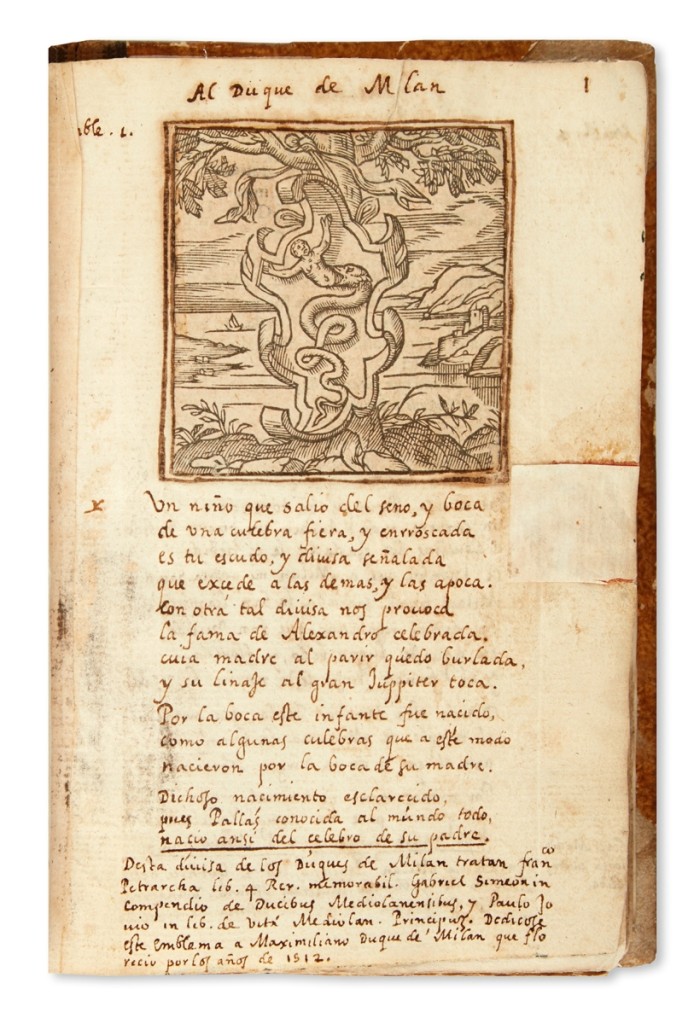 Al Duque de Milan
1
ble. 1.
x
Un niño que salio del seno, y boca
de una culebra fiera, y enrroscada
es tu escudo, y divisa señalada
que excede a las demas, y las apoca.
Con otra tal divisa nos provoca
la fama de Alexandro celebrada.
cuia madre al parir quedo burlada,
y su linaje al gran Iuppiter toca.
Por la boca este infante fue nacido,
como algunas culebras que a este modo
nacieron por la boca de su madre.
Dichoso nacimiento esclarecido,
pues Pallas conocida al mundo todo,
nacio ansi del celebro de su padre.
Desta divisa de los Duques de Milan tratan franco
Petrarcha lib. 4 Rer. memorabil. Gabriel Simeon in
compendio de Ducibus Mediolanensibus, y Paulo Jo
vio in lib. de vita Mediolan. Principus. Dedicose
este Emblema a Maximiliano Duque de Milan que flo
recio por los años de 1512.